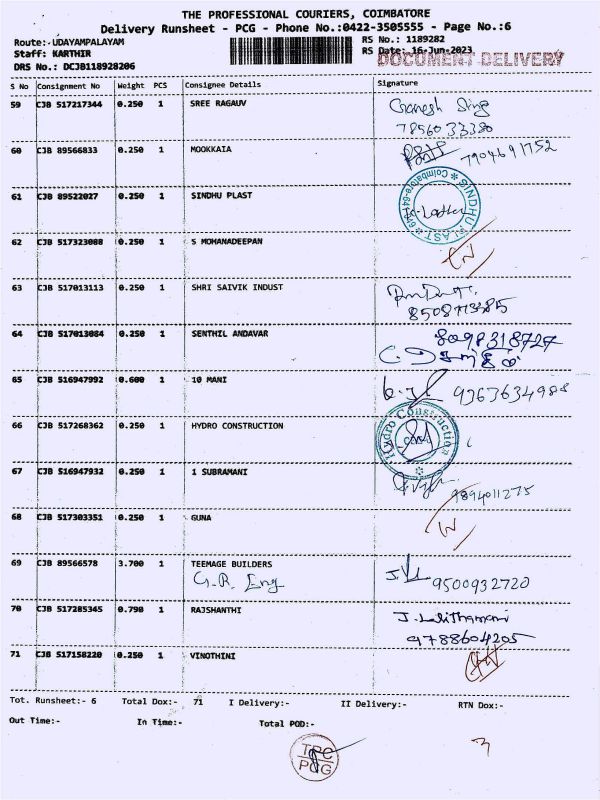 THE PROFESSIONAL COURIERS, COIMBATORE
Delivery Runsheet - PCG - Phone No.:0422-3505555 - Page No.:6
Route:- UDAYAMPALAYAM RS No.: 1189282
Staff: KARTHIR RS Date: 16-Jun-2023
DOCUMENT DELIVERY
DRS No.: DCJB118928206
S No Consignment No Weight PCS Consignee Details Signature
59 CJB 517217344 0.250 1 SREE RAGAUV Ganesh Sing
7856033380
60 CJB 89566833 0.250 1 MOOKKAIA 7904691752
61 CJB 89522027 0.250 1 SINDHU PLAST
SINDHU PLAST * Coimbatore-641
62 CJB 517323088 0.250 1 S MOHANADEEPAN
63 CJB 517013113 0.250 1 SHRI SAIVIK INDUST
64 CJB 517013084 0.250 1 SENTHIL ANDAVAR 8098318727
65 CJB 516947992 0.600 1 10 MANI 9363634988
66 CJB 517268362 0.250 1 HYDRO CONSTRUCTION
Hydro Construction
67 CJB 516947932 0.250 1 1 SUBRAMANI
9894011275
68 CJB 517303351 0.250 1 GUNA
69 CJB 89566578 3.700 1 TEEMAGE BUILDERS
G.R. Eng 9500932720
70 CJB 517285345 0.790 1 RAJSHANTHI J. Lalithamani
9788604205
71 CJB 517158220 0.250 1 VINOTHINI
Tot. Runsheet:- 6 Total Dox:- 71 I Delivery:- II Delivery:- RTN Dox:-
Out Time:- In Time:- Total POD:-
TPC
PCG
3